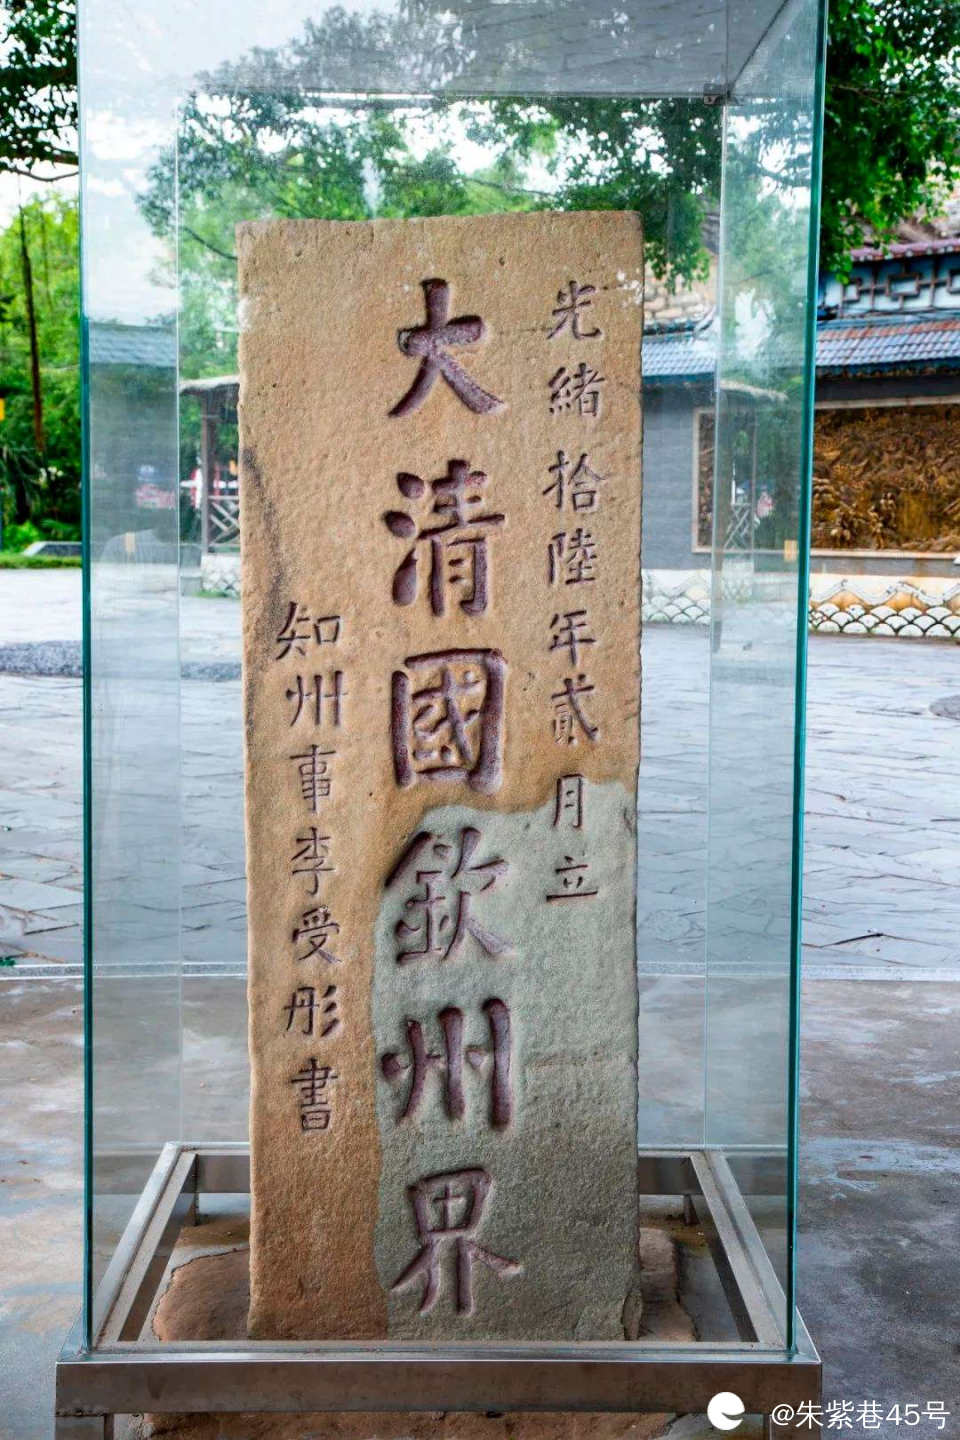 光緒拾陸年貳月立
大清國欽州界
知州事李受彤書
@朱紫巷45号